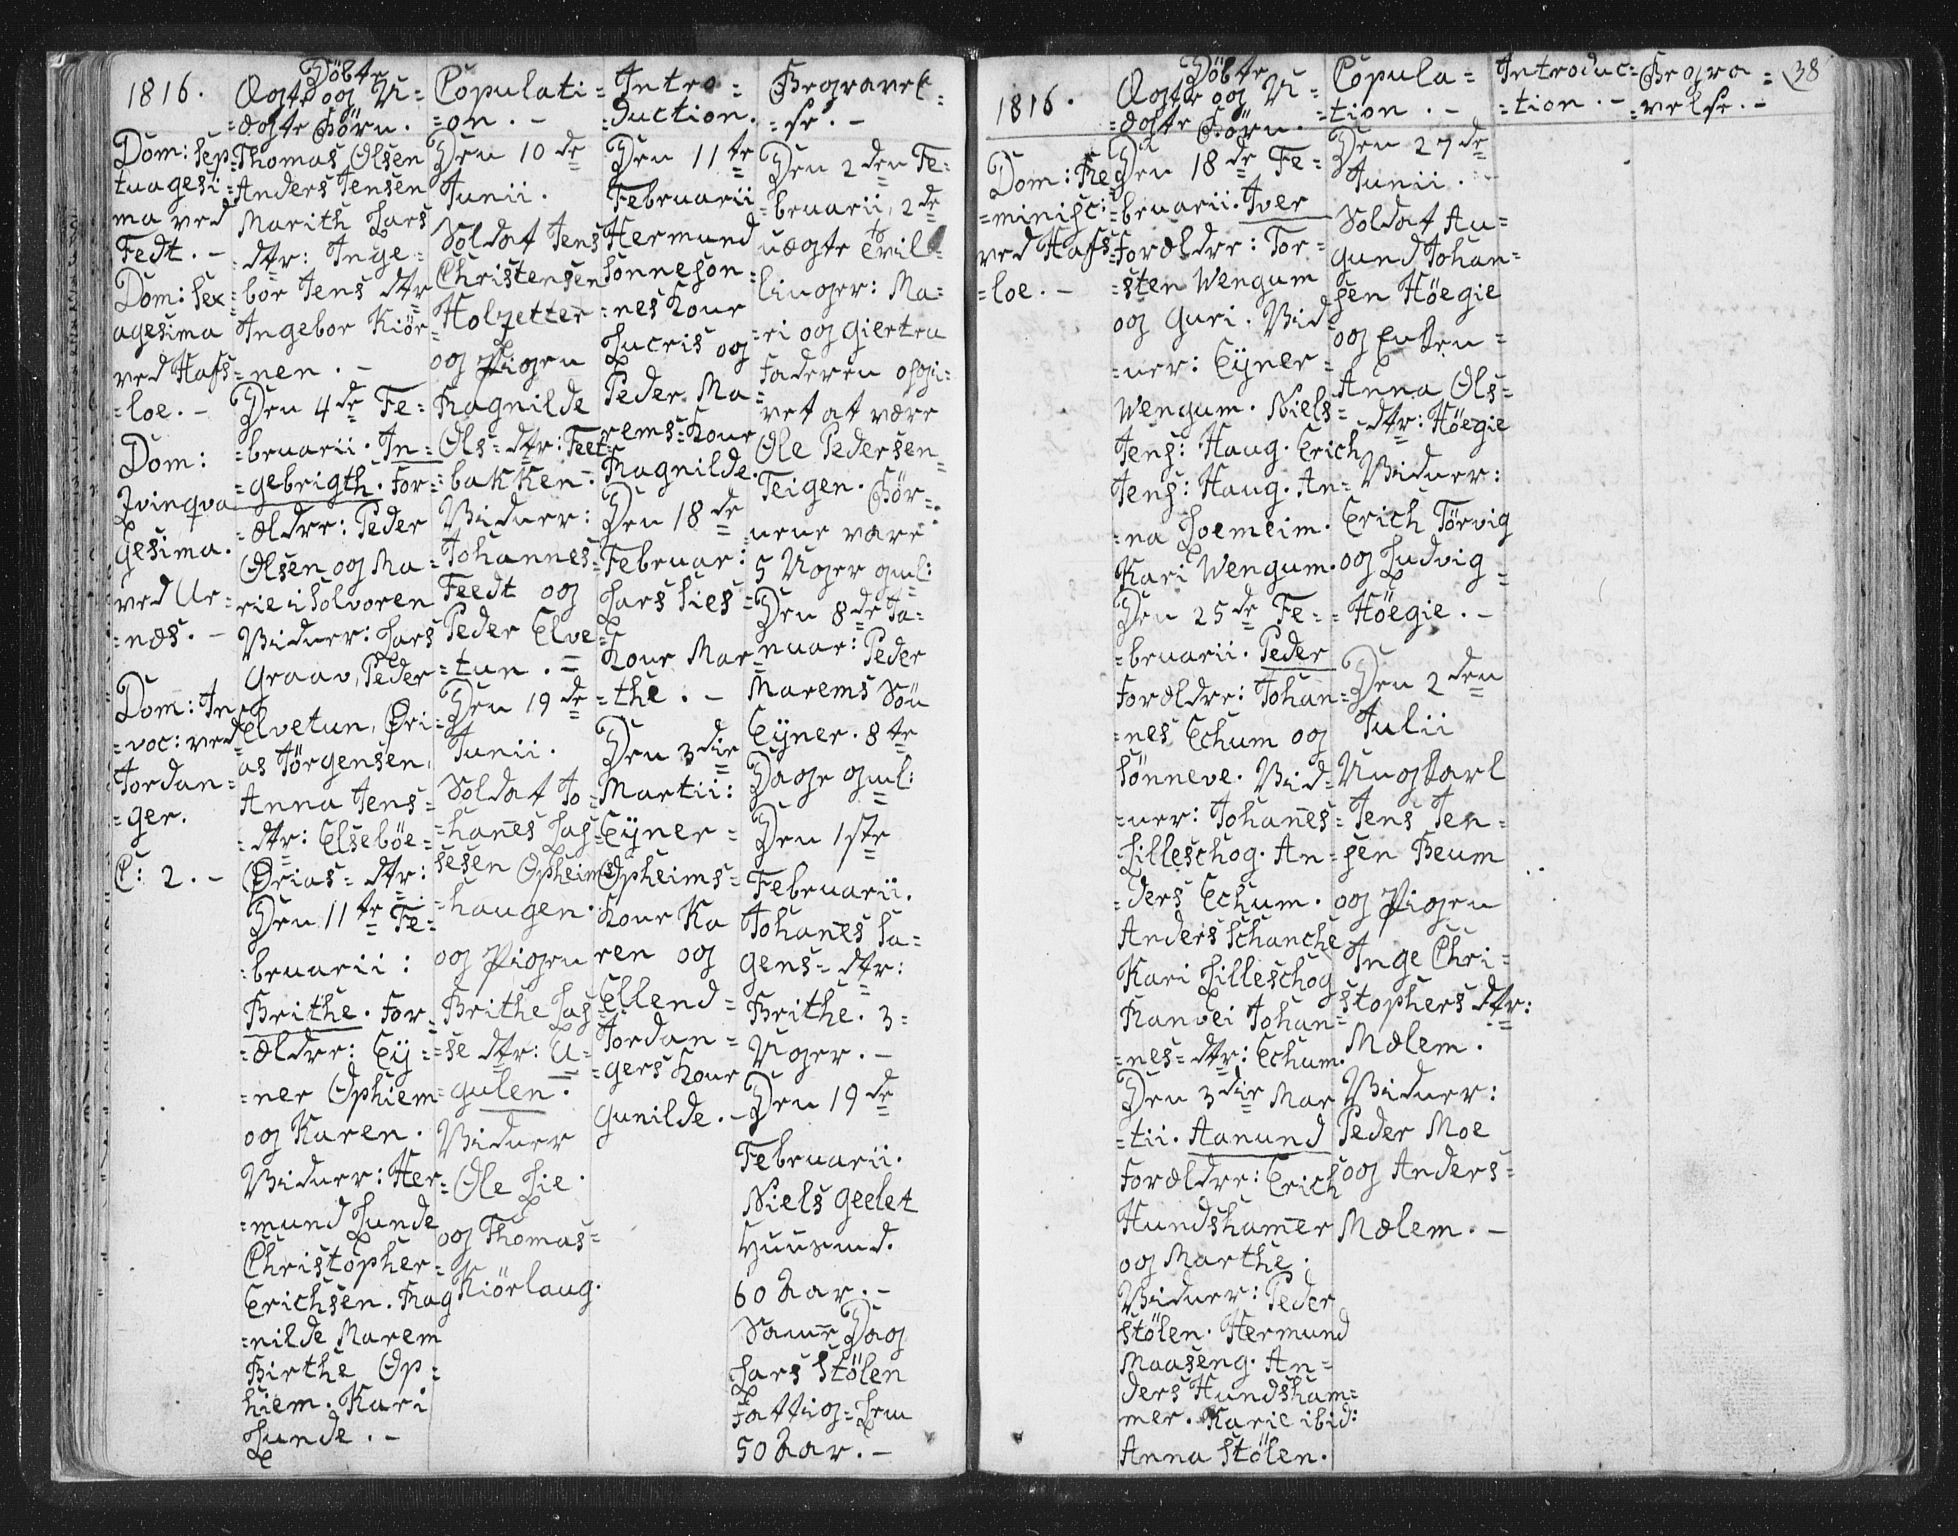 1816.
Dom: Sep=
tuagesi=
ma ved
Fedt. -
Dom: Sex=
agesima
ved Hafs=
=loe. -
Dom:
Qvinqva
gesima.
ved Ur=
=næs. -
Dom: In
=voc: ved
Jordan=
=ger.
C: 2. -
Döbte
Ægte og U=
=ægte Börn.
Thomas Olsen
Anders Jensen
Marith Lars
=dtr: Inge=
=bor Jens dtr
Ingebor Kiör=
=nen. -
Den 4de Fe=
=bruarii. In=
=gebrigth. For=
=ældre: Peder
Olsen og Ma=
=rie i Solvoren
Vidner: Lars
Graav, Peder
Elvetun, Øri=
as Jörgensen,
Anna Jens=
=dtr: Elseböe=
Ørias= dtr:
Den 11te Fe=
=bruarii:
Brithe. For=
=ældre: Eÿ=
=ner Ophiem
og Karen.
Vidner: Her=
=mund Lunde
Christopher=
Erichsen. Rag
=nilde Marem
Birthe Op=
hiem. Kari
Lunde. -
Copulati=
=on. -
Den 10de
Junii.
Soldat Jens
Christensen
Holzetter
og Pigen
Ragnilde
Ols=dtr: Feet=
=bakken.
Vidner:
Johannes=
Feedt og
Peder Elve=
=tun. =
Den 19de
Junii.
Soldat Jo=
=hanes Las=
sesen Opheims
=haugen.
og Pigen
Brithe Las=
=se dtr: U=
=gulen.
Vidner
Ole Lie.
og Thomas=
Kiörlaug.
Intro=
=duction.
Den 11te
Februarii
Hermund
Sönneson=
=nes Kone
Lucris og
Peder Ma=
rems=Kone
Ragnilde.
Den 18de
Februar:
Lars Lies=
Kone Mar=
=the. -
Den 3die
Martii:
Eÿner=
Opheims=
Kone Ka
ren og
Ellend=
Jordan=
=gers Kone
Gunilde. -
Begravel=
=se. -
Den 2den Fe=
=bruarii, 2de
uægte Tvil=
linger: Ma=
=ri og Giertru
Faderen opgi=
vet at være
Ole Pedersen=
Teigen. Bör=
=nene vare
5 Uger gml:
Den 8de Ja=
=nuar: Peder
Marems Sön
Eÿner. 8te
Dage gml:
Den 1ste
Februarii.
Johanes La=
gens=dtr:
Brithe. 3=
Uger. -
Den 19de
Februarii.
Niels Geelet
Huusmd.
60 Aar. -
Same Dag
Lars Stölen
Fattig=Lem
50 Aar. -
38
1816.
Dom: Re
=minisc:
ved Hafs=
=loe. -
Döbte
Ægte og U=
=ægte Börn.
Den 18de Fe=
=bruarii. Iver
Forældre: Tor=
=sten Wengum
og Guri. Vid
=ner: Eÿner=
Wengum. Niels=
Jens: Haug. Erich
Jens: Haug. An=
=na Joemeim.
Kari Wengum.
Den 25de Fe=
=bruarii. Peder
Forældre: Johan=
=nes Echum og
Sönneve. Vid=
=ner: Johanes=
Lilleschog. An=
=ders Echum.
Anders Schanche
Kari Lilleschog
Ranvei Johan=
=nes=dtr: Echum.
Den 3die Mar
=tii. Aanund
Forældre: Erich
Hundshamer
og Marthe;
Vidner: Peder
Stölen. Hermund
Maaseng. An=
ders Hundsham=
mer. Karie ibid:
Anna Stölen.
Copula=
=tion. -
Den 27de
Junii. -
Soldat Au=
gund Johan=
sen Höegie
og Enken=
Anna Ols=
=dtr: Höegie
Vidner:
Erich Törvig
og Ludvig=
=Höegie. -
Den 2den
Julii
Ungkarl
Jens Jen=
sen Beum
og Pigen
Inge Chri=
stophers dtr:
Mælem.
Vidner:
Peder Moe
og Anders=
Mælem. -
Introduc=
=tion. -
Begra=
=velse. -